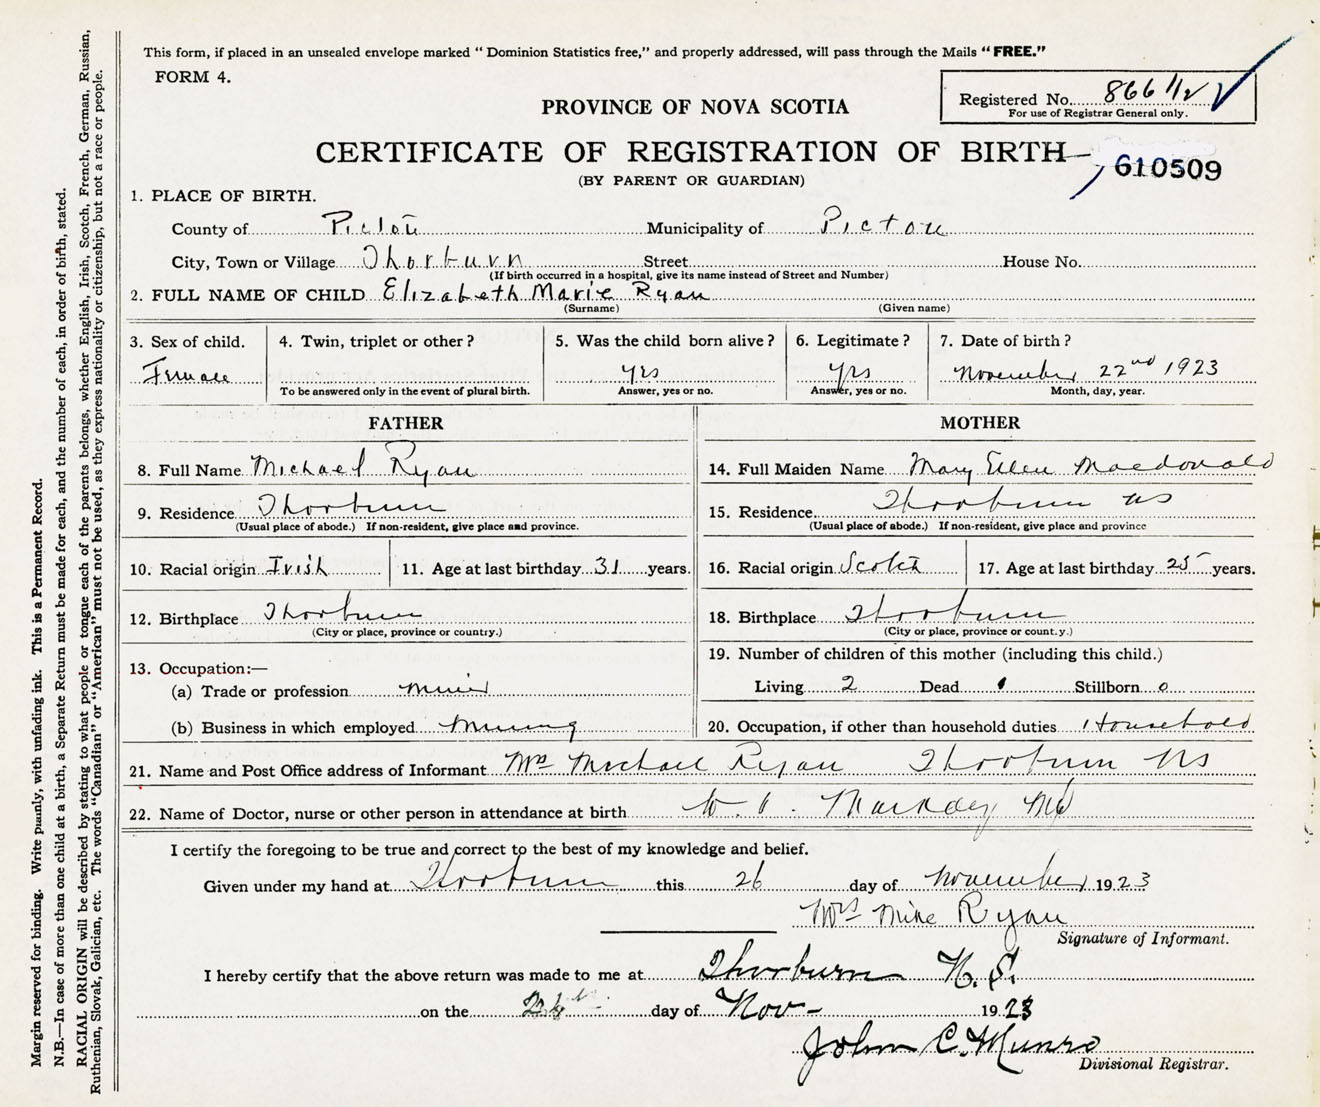 This form, if placed in an unsealed envelope marked “ Dominion Statistics free,” and properly addressed, will pass through the Mails “ FREE.”
FORM 4.
Registered No. 866 1/2
For use of Registrar General only.
PROVINCE OF NOVA SCOTIA
CERTIFICATE OF REGISTRATION OF BIRTH
610509
(BY PARENT OR GUARDIAN)
1. PLACE OF BIRTH.
County of Pictou Municipality of Pictou
City, Town or Village Thorburn Street House No.
(If birth occurred in a hospital, give its name instead of Street and Number)
2. FULL NAME OF CHILD Elizabeth Marie Ryan
(Surname) (Given name)
3. Sex of child. Female
4. Twin, triplet or other ?
To be answered only in the event of plural birth.
5. Was the child born alive ? yes
Answer, yes or no.
6. Legitimate ? yes
Answer, yes or no.
7. Date of birth ? November 22nd 1923
Month, day, year.
FATHER
8. Full Name Michael Ryan
9. Residence Thorburn
(Usual place of abode.) If non-resident, give place and province.
10. Racial origin Irish 11. Age at last birthday 31 years.
12. Birthplace Thorburn
(City or place, province or country.)
13. Occupation:—
(a) Trade or profession miner
(b) Business in which employed Mining
MOTHER
14. Full Maiden Name Mary Ellen Macdonald
15. Residence Thorburn NS
(Usual place of abode.) If non-resident, give place and province
16. Racial origin Scotch 17. Age at last birthday 25 years.
18. Birthplace Thorburn
(City or place, province or count.y.)
19. Number of children of this mother (including this child.)
Living 2 Dead Stillborn 0
20. Occupation, if other than household duties Household
21. Name and Post Office address of Informant Mrs Michael Ryan Thorburn NS
22. Name of Doctor, nurse or other person in attendance at birth W. MD
I certify the foregoing to be true and correct to the best of my knowledge and belief.
Given under my hand at Thorburn this 26 day of November 1923
Mrs Mike Ryan
Signature of Informant.
I hereby certify that the above return was made to me at Thorburn N.S.
on the 26th day of Nov- 1923
John C. Munro
Divisional Registrar.
Margin reserved for binding. Write plainly, with unfading ink. This is a Permanent Record.
N.B.—In case of more than one child at a birth, a Separate Return must be made for each, and the number of each, in order of birth, stated.
RACIAL ORIGIN will be described by stating to what people or tongue each of the parents belongs, whether English, Irish, Scotch, French, German, Russian,
Ruthenian, Slovak, Galician, etc. The words “Canadian” or “American” must not be used, as they express nationality or citizenship, but not a race or people.